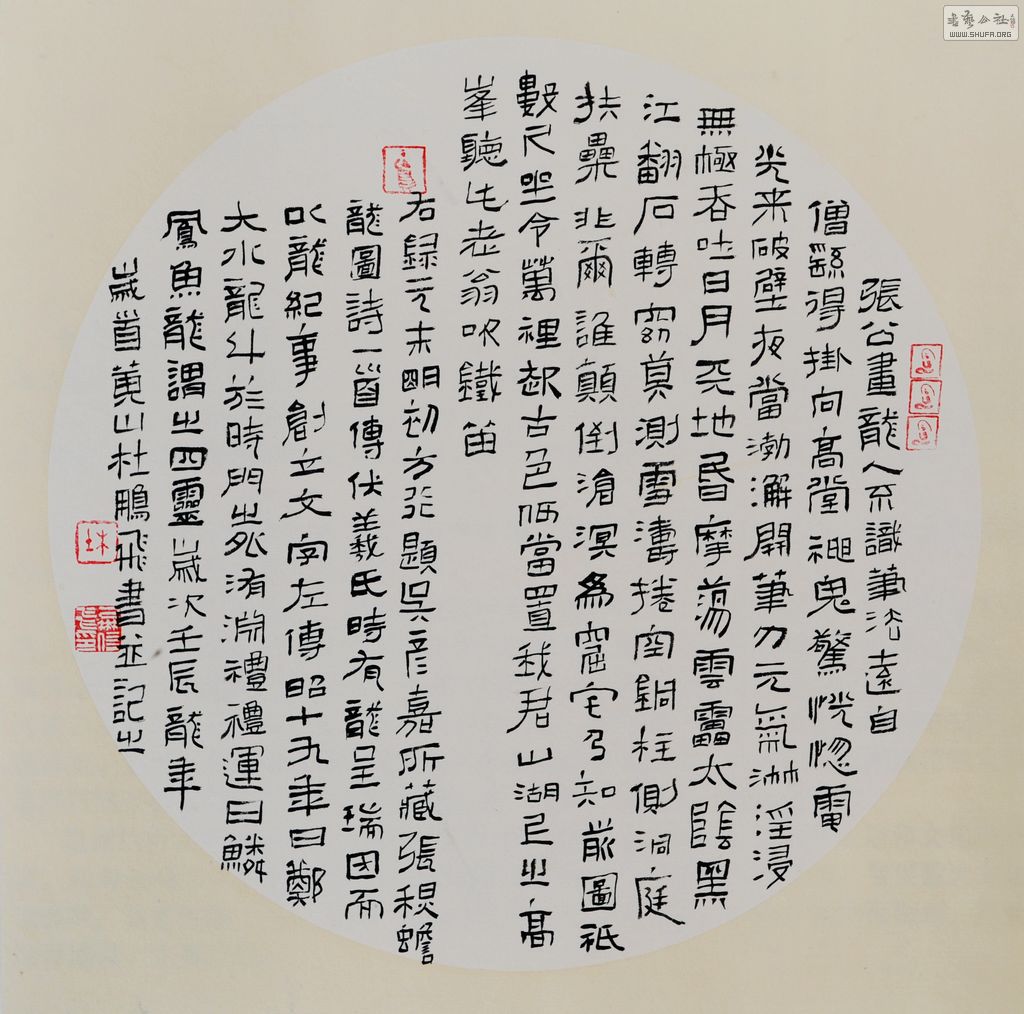 張公畫龍人不識筆法遠自
僧繇得掛向高堂神鬼驚恍惚電
光来破壁夜當渤澥開筆力元氣淋淫浸
無極吞吐日月天地昏摩蕩雲靁太陰黑
江翻石轉窈莫測雪濤捲空銅柱側洞庭
扶桑非爾誰顛倒滄溟為窟宅乃知前圖祗
數尺坐令萬裡起古色何當置我君山湖上之高
峯聽此老翁吹鐵笛
右録元末明初方行題吳彥嘉所藏張秋蟾
龍圖詩一首傳伏羲氏時有龍呈瑞因而
以龍紀事創立文字左傳昭十九年曰鄭
大水龍斗於時門之外洧淵禮禮運曰鱗
鳳魚龍謂之四靈歲次壬辰龍年
歲首黄山杜鵬飛書並記之
书艺公社
WWW.SHUFA.ORG